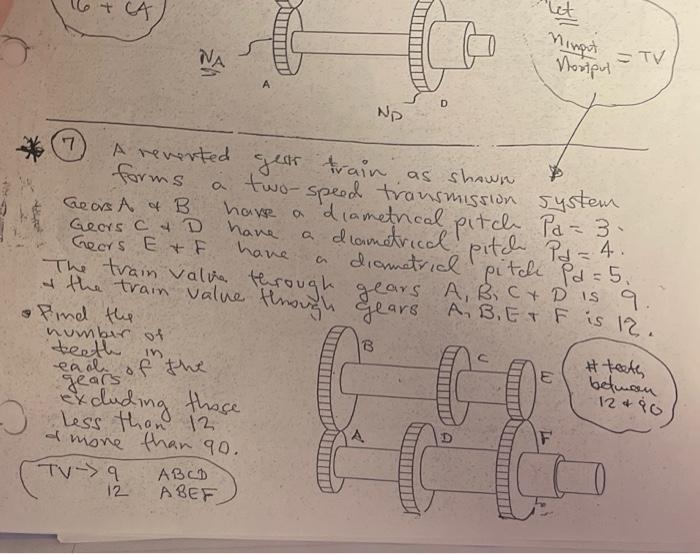 16 + 64
NA
A
ND
D
Let
ninput / noutput = TV
* 7 A reverted gear train as shown
forms a two-speed transmission system
Gears A & B have a diametrical pitch Pd = 3.
Gears C & D have a diametrical pitch Pd = 4.
Gears E + F have a diametrical pitch Pd = 5.
The train value through gears A, B, C + D is 9.
& the train value through gears A, B, E + F is 12.
• Find the
number of
teeth in
each of the
gears
excluding those
less than 12
& more than 90.
TV → 9 ABCD
12 ABEF
B
C
E
A
D
F
# teeth
between
12 & 90